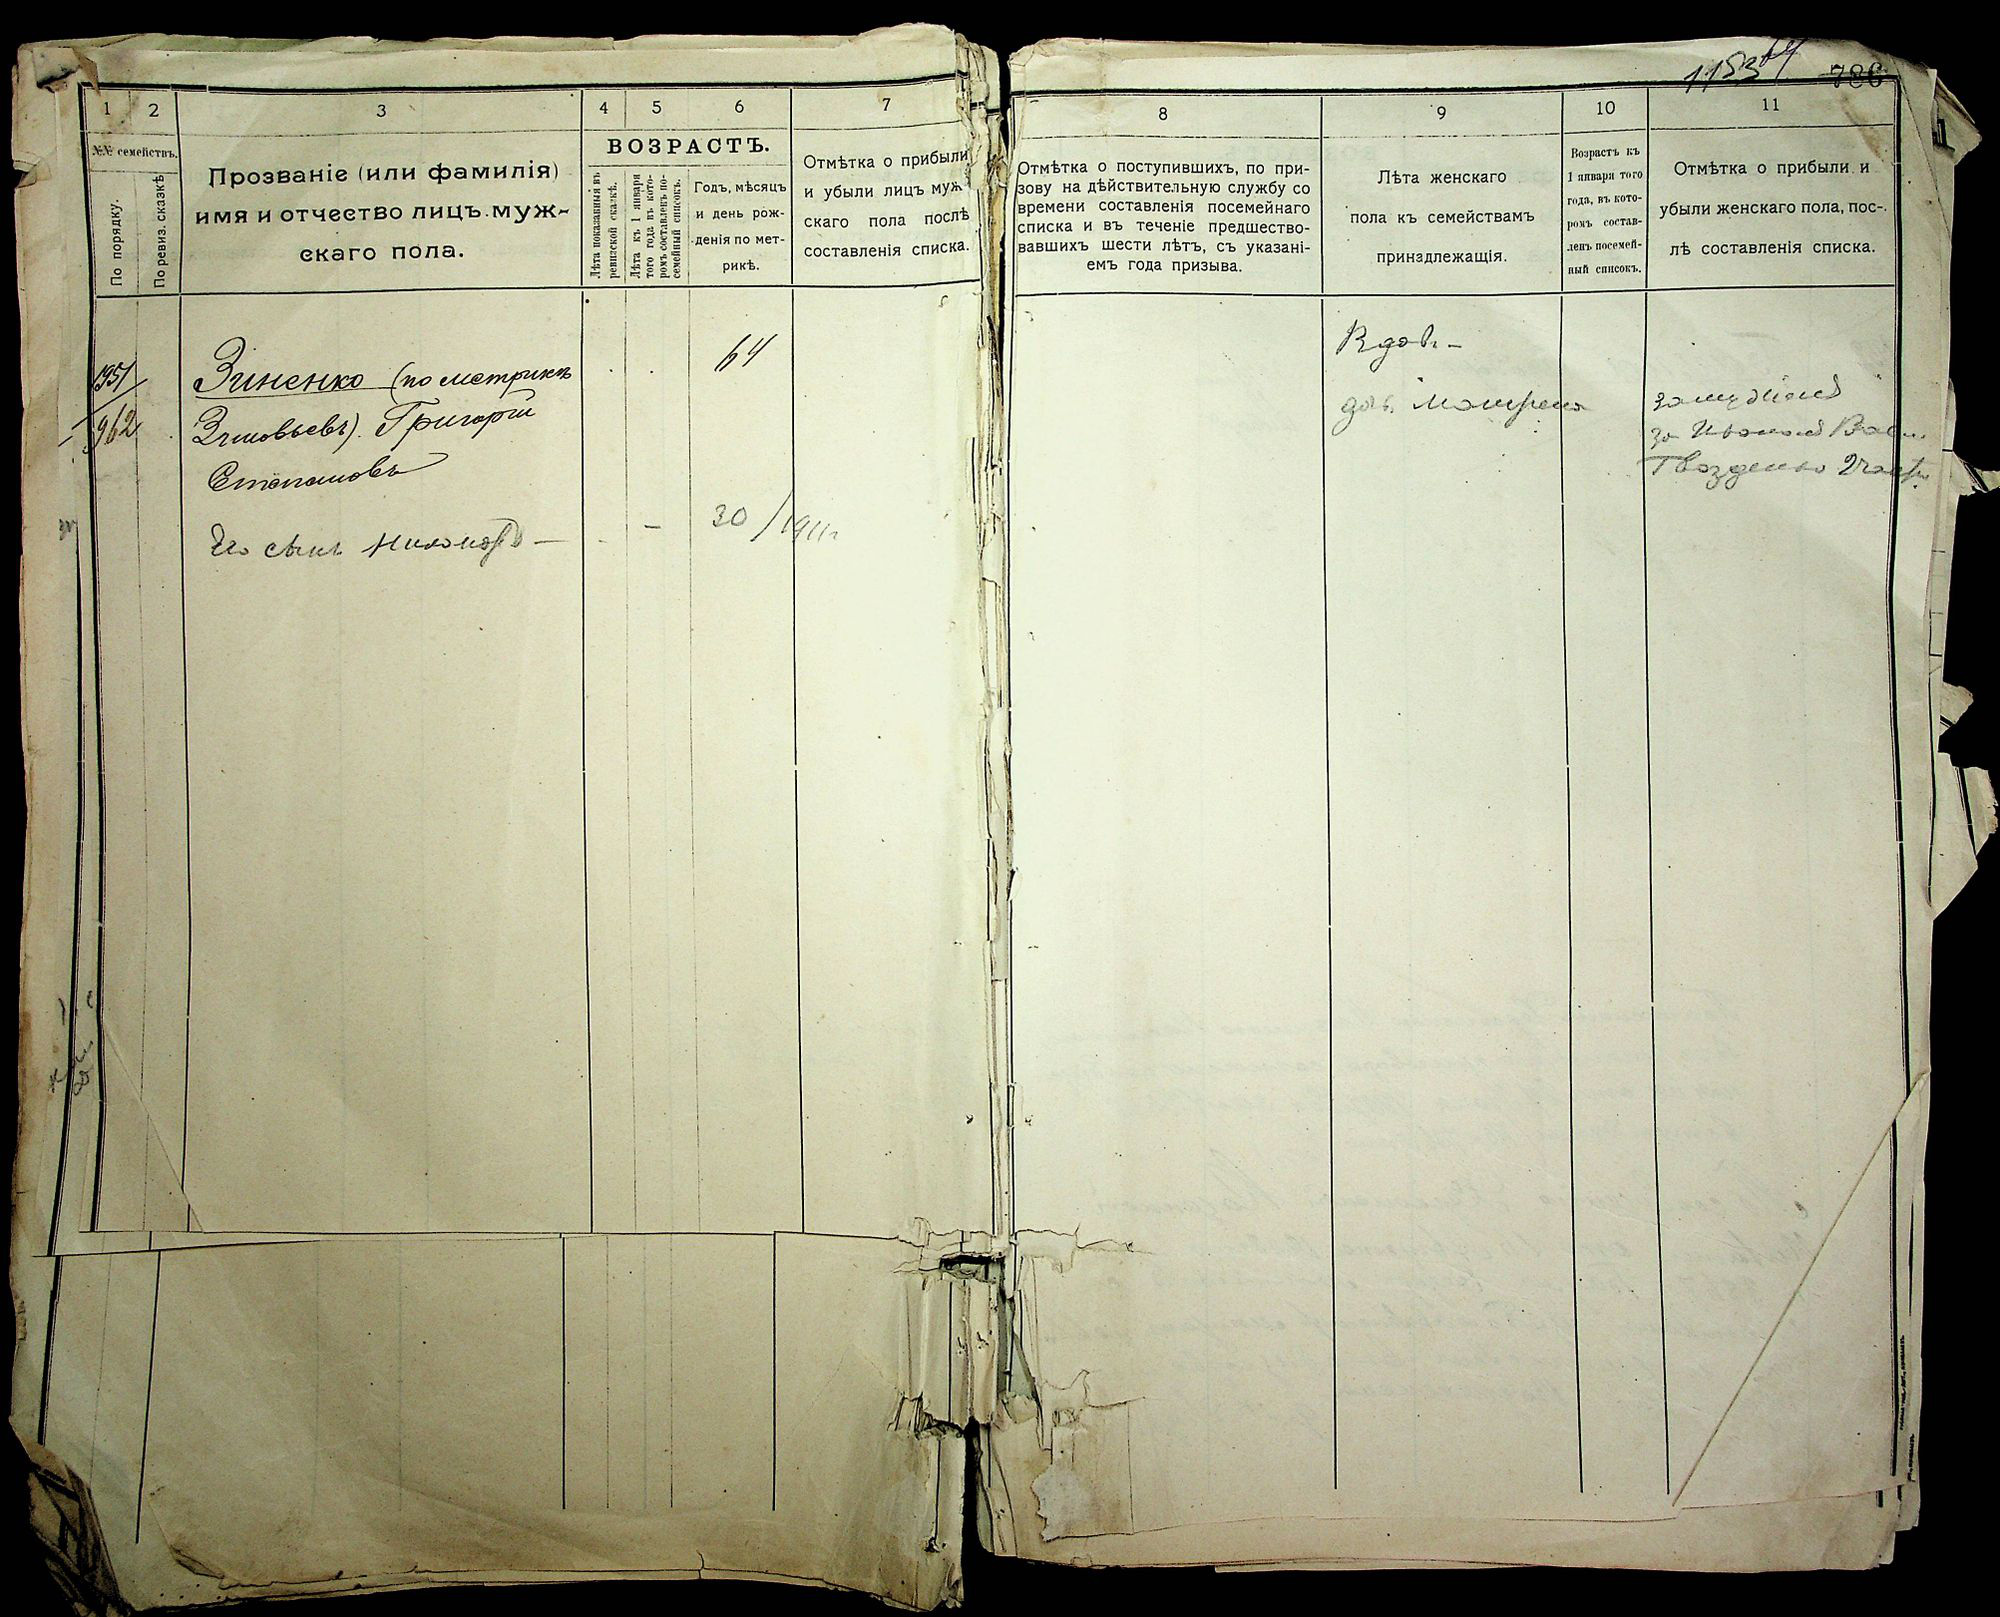 1153
786
1
2
3
4
5
6
7
8
9
10
11
№№ семействъ.
По порядку.
По ревиз. сказкѣ
Прозваніе (или фамилія)
имя и отчество лицъ муж-
скаго пола.
ВОЗРАСТЪ.
Лѣта показанныя въ
ревизской сказкѣ.
Лѣта къ 1 января
того года въ кото-
ромъ составленъ по-
семейный списокъ.
Годъ, мѣсяцъ
и день рож-
денія по мет-
рикѣ.
Отмѣтка о прибыли
и убыли лицъ муж-
скаго пола послѣ
составленія списка.
Отмѣтка о поступившихъ, по при-
зову на дѣйствительную службу со
времени составленія посемейнаго
списка и въ теченіе предшество-
вавшихъ шести лѣтъ, съ указані-
емъ года призыва.
Лѣта женскаго
пола къ семействамъ
принадлежащія.
Возрастъ къ
1 января того
года, въ кото-
ромъ состав-
ленъ посемей-
ный списокъ.
Отмѣтка о прибыли и
убыли женскаго пола, пос-
лѣ составленія списка.
1951
962
Зиненко (по метрикѣ
Зиновьевъ). Григорій
Степановъ
64
Его сынъ Никаноръ —
— 30 / 1911г
Вдов. —
доч. Матрена
замужіемъ
за Иваномъ Васил.
Гвозденко